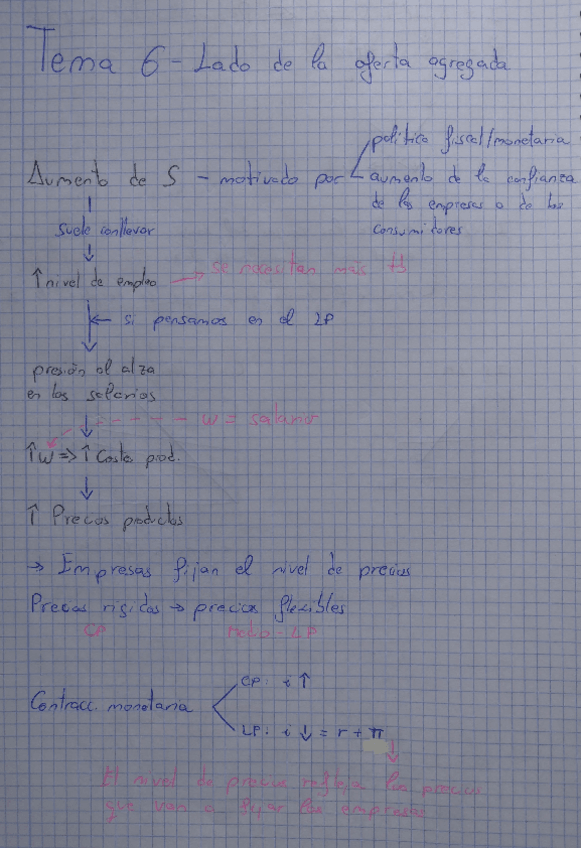 Tema 6 - Lado de la oferta agregada
política fiscal/monetaria
Aumento de S - motivado por aumento de la confianza
de las empresas o de los
consumidores
suele conllevar
↑ nivel de empleo → se necesitan más
← si pensamos en el LP
presión al alza
en los salarios
w = salario
↑w => ↑ Costes prod.
↑ Precios productos
→ Empresas fijan el nivel de precios
Precios rígidos → precios flexibles
CP Medio-LP
CP: i ↑
Contracc. monetaria
LP: i ↓ = r + π
El nivel de precios refleja los precios
que van a fijar las empresas